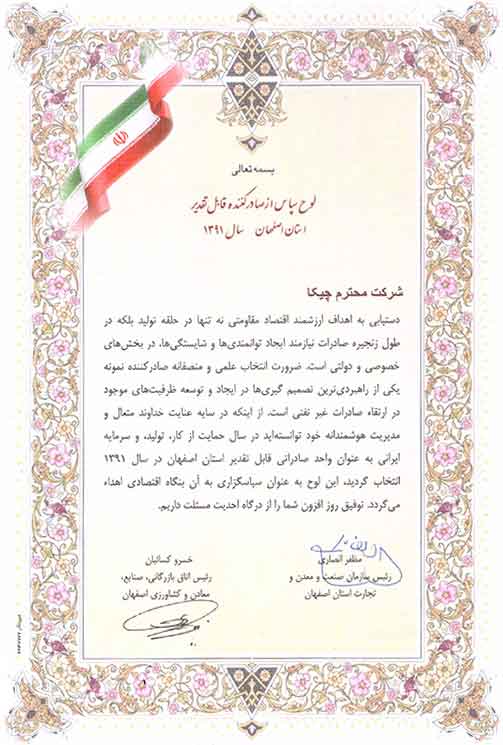 بسمه تعالی
لوح سپاس از صادرکننده قابل تقدیر
استان اصفهان سال ۱۳۹۱
شرکت محترم چیکا
دستیابی به اهداف ارزشمند اقتصاد مقاومتی نه تنها در حلقه تولید بلکه در
طول زنجیره صادرات نیازمند ایجاد توانمندی‌ها و شایستگی‌ها، در بخش‌های
خصوصی و دولتی است. ضرورت انتخاب علمی و منصفانه صادرکننده نمونه
یکی از راهبردی‌ترین تصمیم گیری‌ها در ایجاد و توسعه ظرفیت‌های موجود
در ارتقاء صادرات غیر نفتی است. از اینکه در سایه عنایت خداوند متعال و
مدیریت هوشمندانه خود توانسته‌اید در سال حمایت از کار، تولید، و سرمایه
ایرانی به عنوان واحد صادراتی قابل تقدیر استان اصفهان در سال ۱۳۹۱
انتخاب گردید، این لوح به عنوان سپاسگزاری به آن بنگاه اقتصادی اهداء
می‌گردد. توفیق روز افزون شما را از درگاه احدیت مسئلت داریم.
مظفر انصاری
رئیس سازمان صنعت و معدن و
تجارت استان اصفهان
خسرو کسائیان
رئیس اتاق بازرگانی، صنایع،
معادن و کشاورزی اصفهان